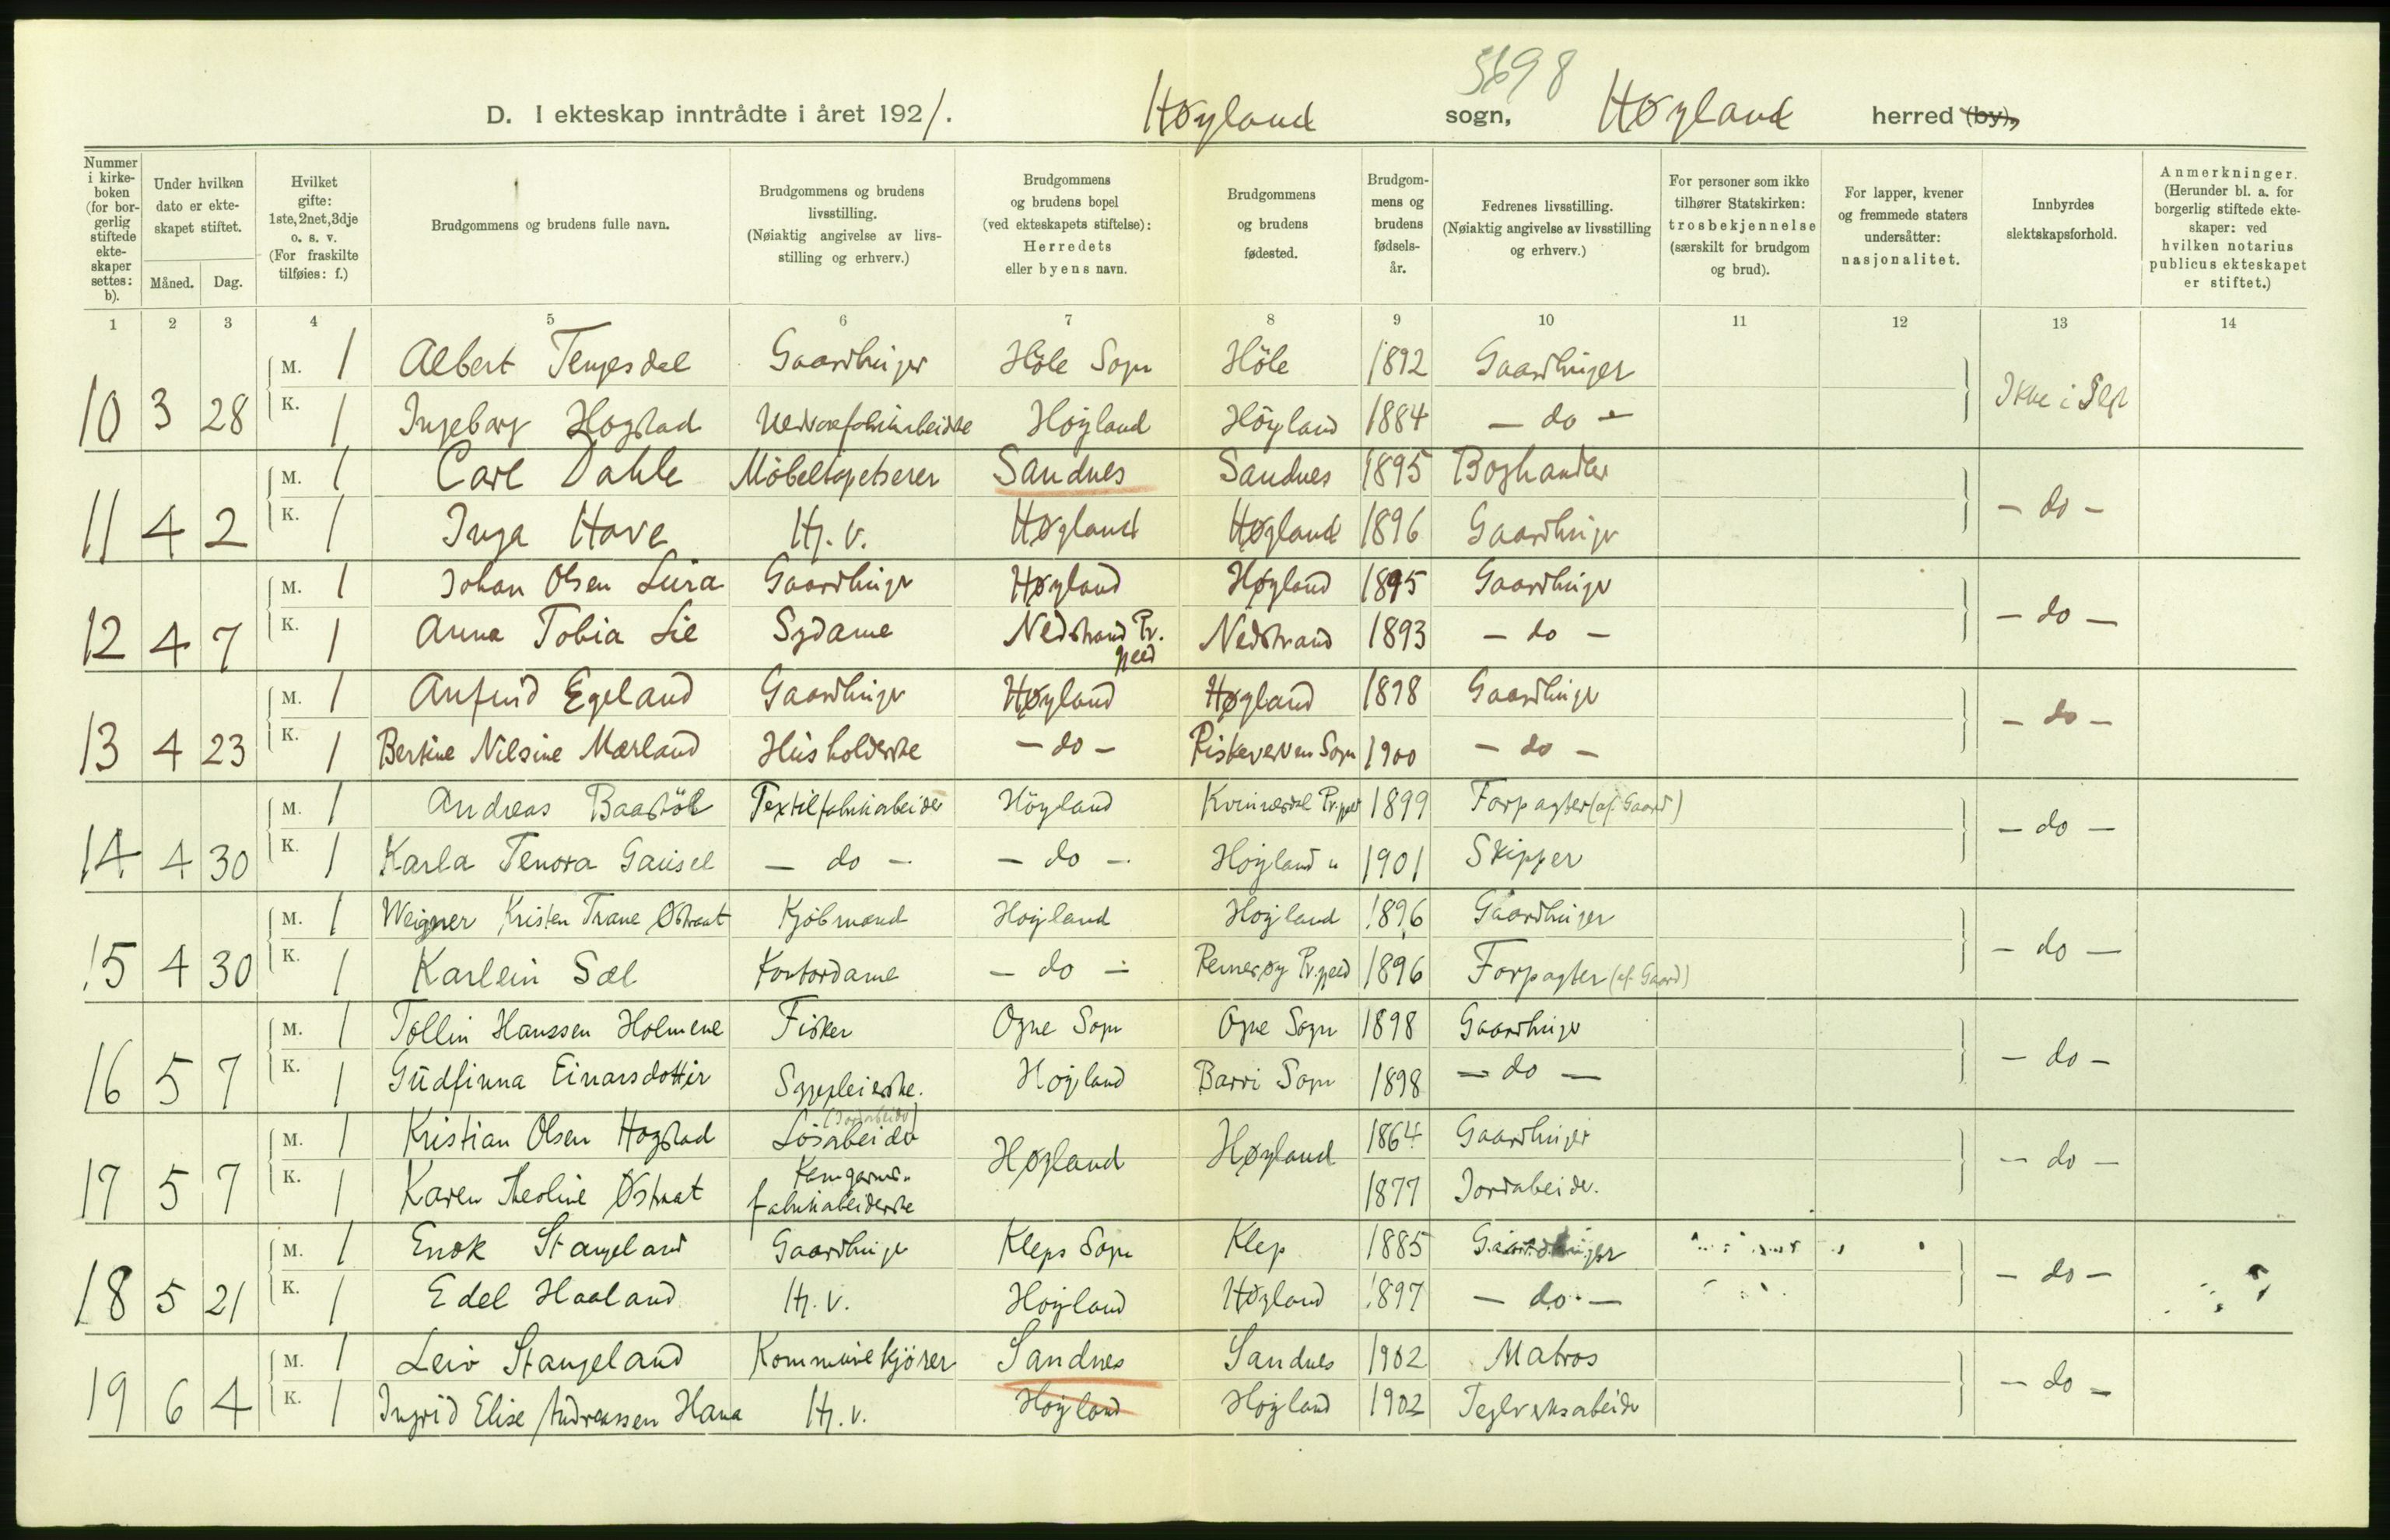 5698
D. I ekteskap inntrådte i året 1921. Høyland sogn, Høyland herred (by),
Nummer i kirkeboken (for borgerlig stiftede ekteskaper settes: b).
Under hvilken dato er ekteskapet stiftet.
Måned. Dag.
Hvilket gifte: 1ste, 2net, 3dje o. s. v. (For fraskilte tilføies: f.)
Brudgommens og brudens fulle navn.
Brudgommens og brudens livsstilling. (Nøiaktig angivelse av livsstilling og erhverv.)
Brudgommens og brudens bopel (ved ekteskapets stiftelse): Herredets eller byens navn.
Brudgommens og brudens fødested.
Brudgommens og brudens fødselsår.
Fedrenes livsstilling. (Nøiaktig angivelse av livsstilling og erhverv.)
For personer som ikke tilhører Statskirken: trosbekjennelse (særskilt for brudgom og brud).
For lapper, kvener og fremmede staters undersåtter: nasjonalitet.
Innbyrdes slektskapsforhold.
Anmerkninger. (Herunder bl. a. for borgerlig stiftede ekteskaper: ved hvilken notarius publicus ekteskapet er stiftet.)
1 2 3 4 5 6 7 8 9 10 11 12 13 14
M. 1 Albert Tengesdal Gaardbruger Höle Sogn Höle 1892 Gaardbruger
10 3 28 K. 1 Ingeborg Hogstad Uldvarefabrikarbeiderske Höyland Höyland 1884 - do - Ikke i Slegt
M. 1 Carl Dahle Möbeltapetserer Sandnes Sandnes 1895 Boghandler
11 4 2 K. 1 Inga Hove Hj. v. Høyland Høyland 1896 Gaardbruger - do -
M. 1 Johan Olsen Lura Gaardbruger Høyland Høyland 1895 Gaardbruger
12 4 7 K. 1 Anna Tobia Lie Sydame Nedstrand Pr.gjeld Nedstrand 1893 - do - - do -
M. 1 Anfind Egeland Gaardbruger Høyland Høyland 1898 Gaardbruger
13 4 23 K. 1 Bertine Nilsine Mærland Husholderske - do - Riskekverven Sogn 1900 - do - - do -
M. 1 Andreas Baastöl Textilfabrikarbeider Höyland Kvinesdal Pr.gjeld 1899 Forpagter (af Gaard)
14 4 30 K. 1 Karla Tenora Gausel - do - - do - Höyland " 1901 Skipper - do -
M. 1 Weigner Kristen Trane Østraat Kjöbmand Höyland Höyland 1896 Gaardbruger
15 4 30 K. 1 Karlein Sæl Kontordame - do - Rennesøy Pr.gjeld 1896 Forpagter (af Gaard) - do -
M. 1 Tollin Hanssen Holmene Fisker Ogne Sogn Ogne Sogn 1898 Gaardbruger
16 5 7 K. 1 Gudfinna Einarsdottir Sygepleierske. Höyland Barri Sogn 1898 - do - - do -
M. 1 Kristian Olsen Hogstad Lösarbeider (Jordarbeider) Høyland Høyland 1864 Gaardbruger
17 5 7 K. 1 Karen Teoline Østraat Kamgarnsfabrikarbeiderske 1877 Jordarbeider. - do -
M. 1 Enok Stangeland Gaardbruger Kleps Sogn Klep 1885 Gaardbruger
18 5 21 K. 1 Edel Haaland Hj. v. Höyland Høyland 1897 - do - - do -
M. 1 Leiv Stangeland Kommunekjörer Sandnes Sandnes 1902 Matros
19 6 4 K. 1 Ingrid Elise Andreassen Hana Hj. v. Höyland Höyland 1902 Teglverksarbeider - do -